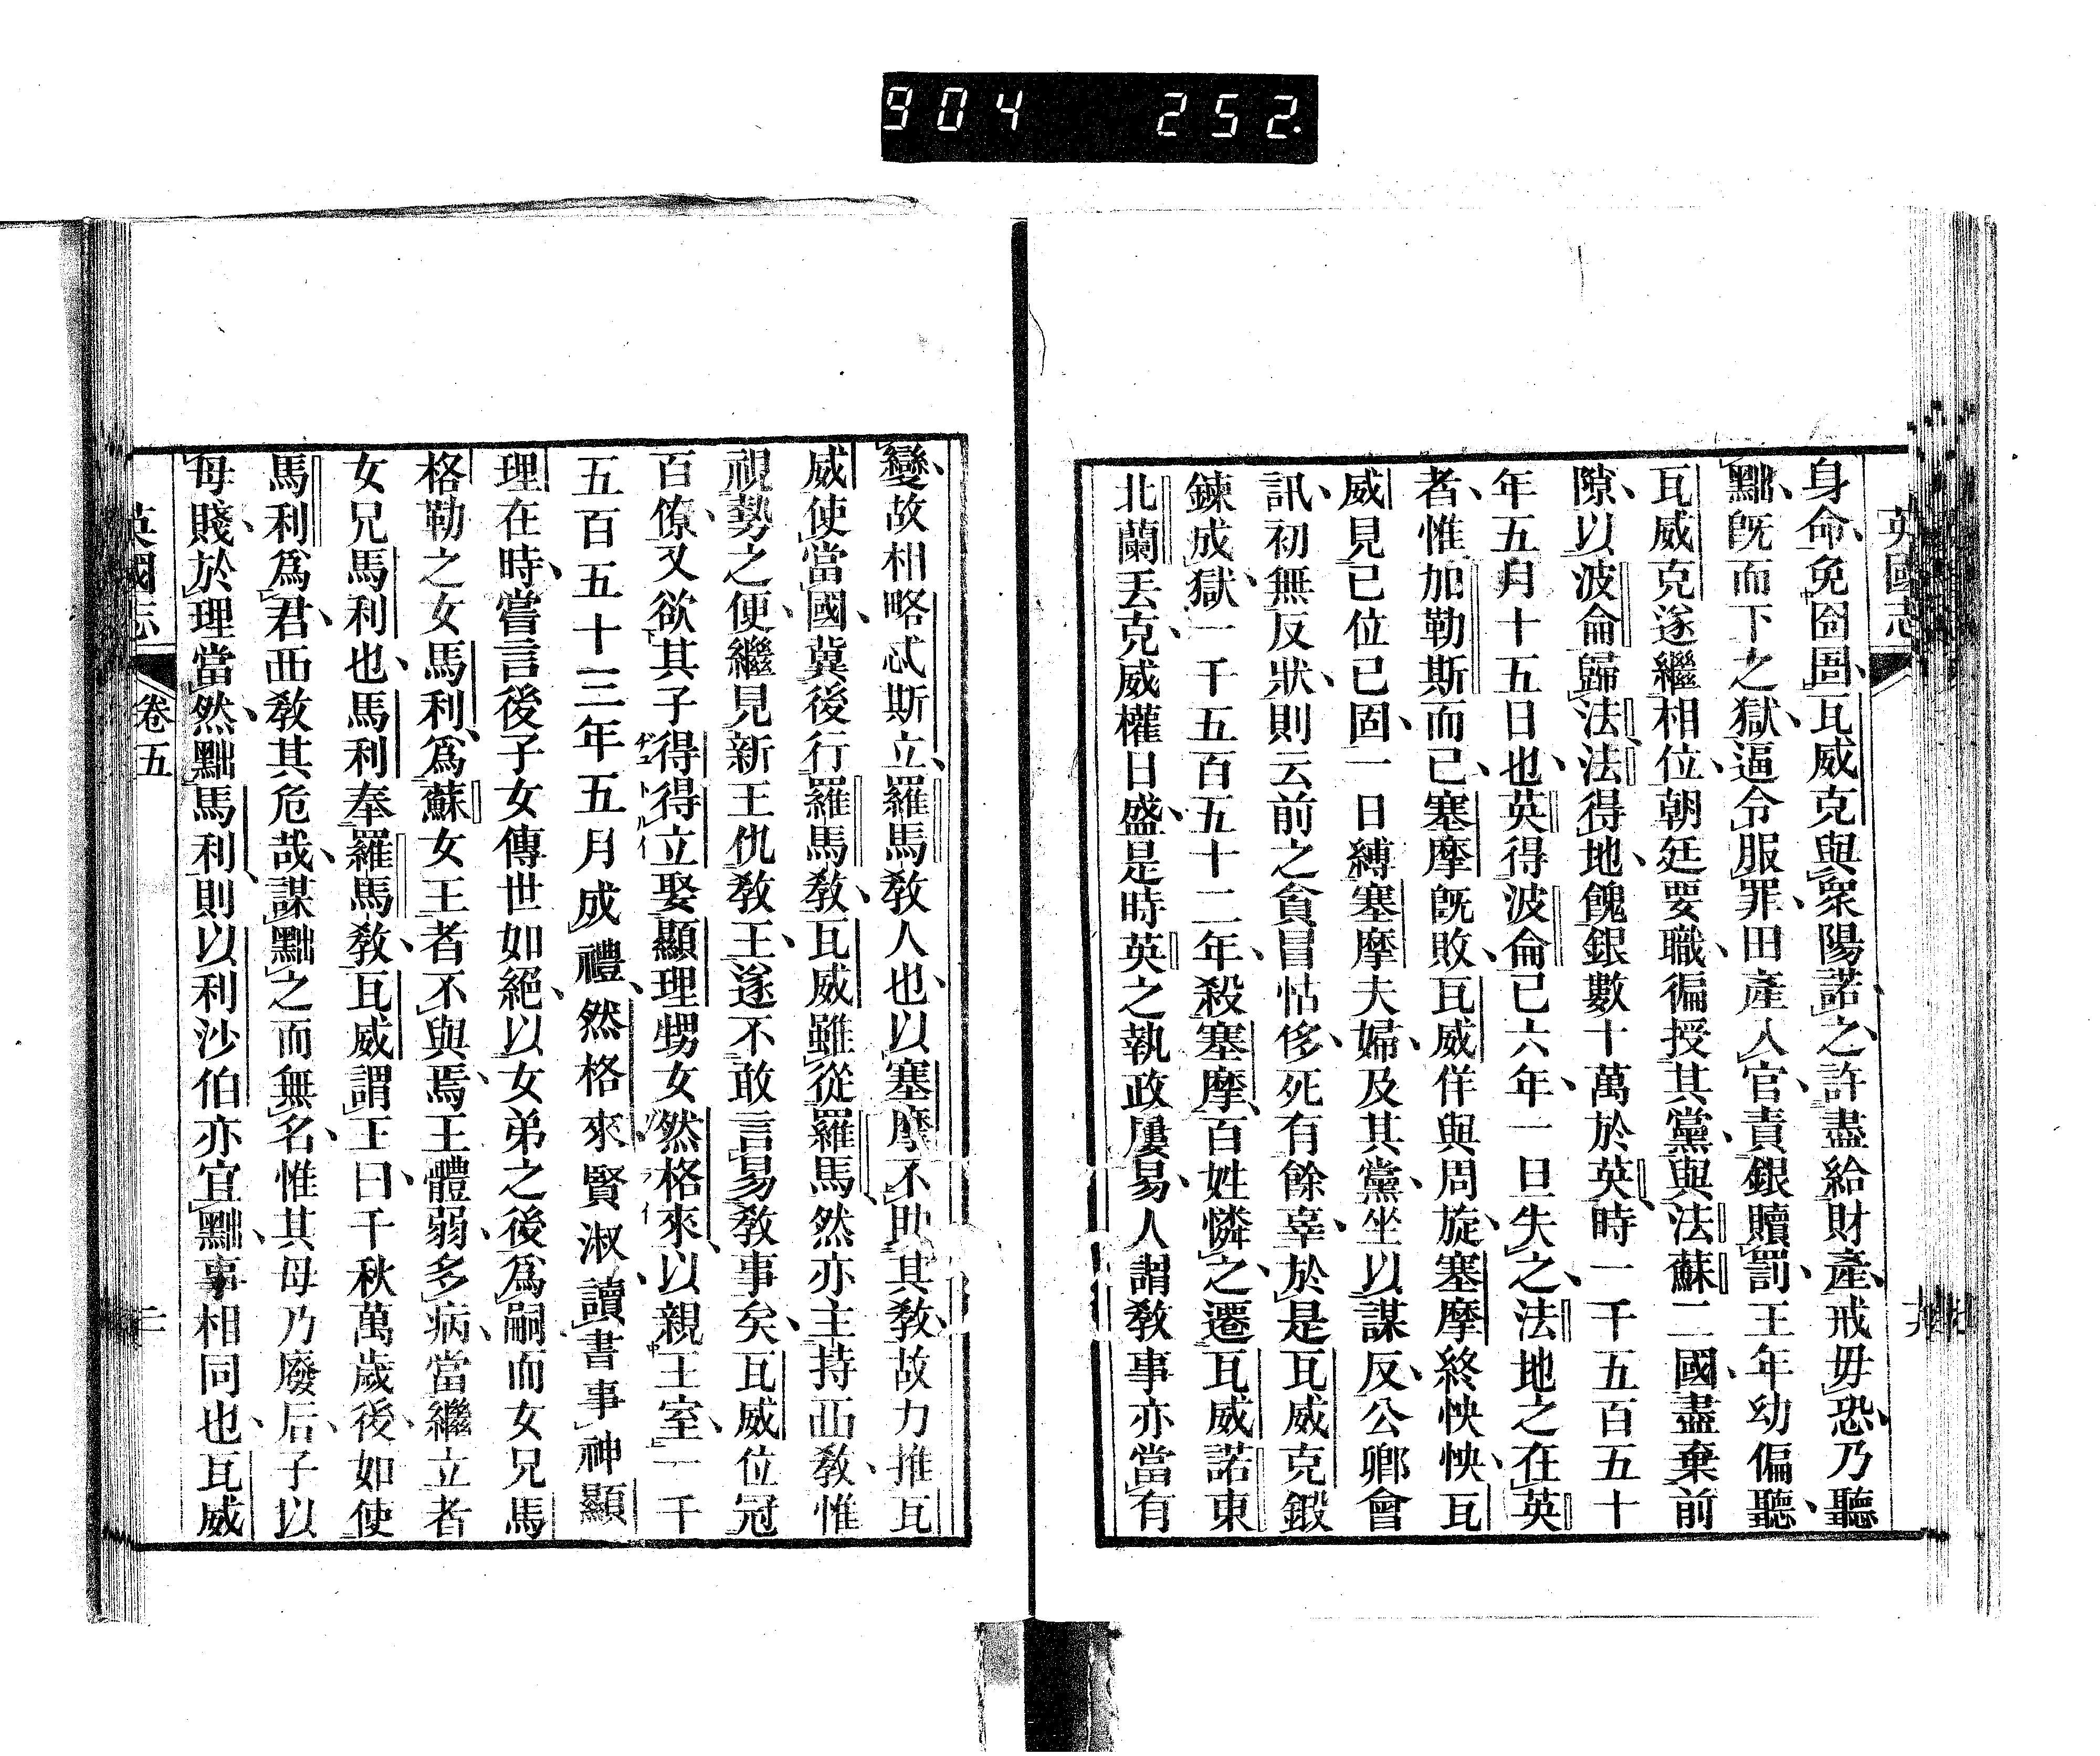 904 252.
英國志
身命免囹圄瓦威克與衆陽諾之許盡給財產戒毋恐乃聽
黜既而下之獄逼令服罪田產入官責銀贖罰王年幼偏聽
瓦威克遂繼相位朝廷要職徧授其黨與法蘇二國盡棄前
隙以波侖歸法法得地餽銀數十萬於英時一千五百五十
年五月十五日也英得波侖已六年一旦失之法地之在英
者惟加勒斯而已塞摩既敗瓦威佯與周旋塞摩終怏怏瓦
威見已位已固一日縛塞摩夫婦及其黨坐以謀反公卿會
訊初無反狀則云前之貪冒怙侈死有餘辜於是瓦威克鍛
鍊成獄一千五百五十二年殺塞摩百姓憐之遷瓦威諾東
北蘭丟克威權日盛是時英之執政屢易人謂敎事亦當有
變故相略忒斯立羅馬敎人也以塞摩不助其敎故力推瓦
威使當國冀後行羅馬敎瓦威雖從羅馬然亦主持西敎惟
視勢之便繼見新王仇敎王遂不敢言易敎事矣瓦威位冠
百僚又欲其子得得立娶顯理甥女然格來以親王室一千
五百五十三年五月成禮然格來賢淑讀書事神顯
理在時嘗言後子女傳世如絕以女弟之後爲嗣而女兄馬
格勒之女馬利爲蘇女王者不與焉王體弱多病當繼立者
女兄馬利也馬利奉羅馬敎瓦威謂王曰千秋萬歲後如使
馬利爲君西敎其危哉謀黜之而無名惟其母乃廢后子以
母賤於理當然黜馬利則以利沙伯亦宜黜事相同也瓦威
英國志 卷五 二